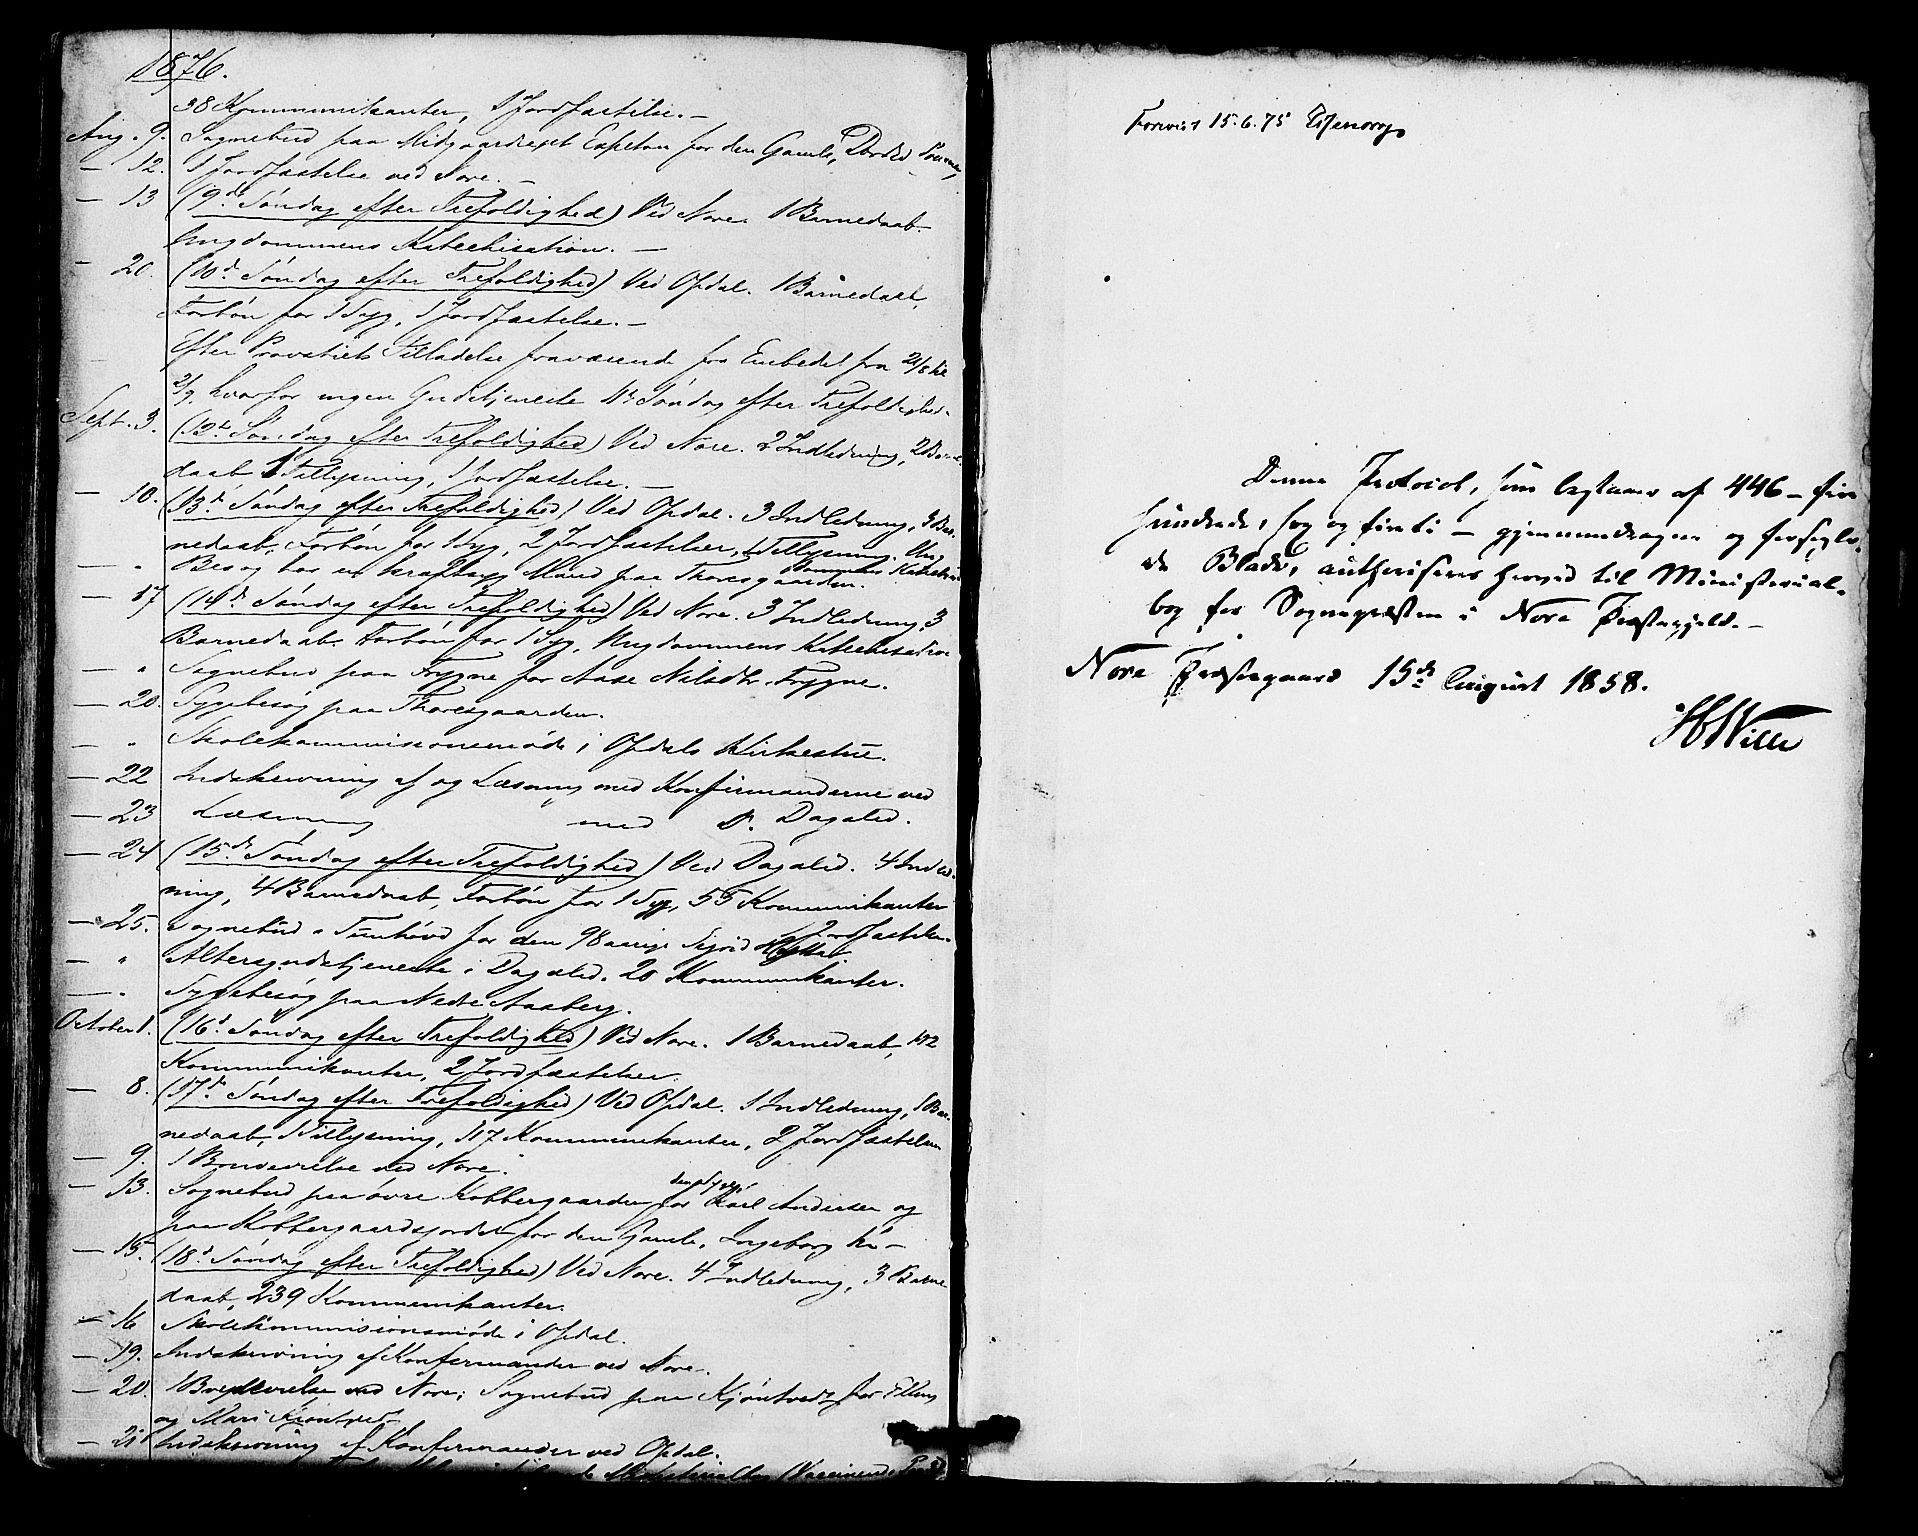 1876.
38 Kommunikanter, 1 Jordfæstelse. -
Aug. 9. Sognebud paa Midgaardsejet for den Gamle,
- 12. 1 Jordfæstelse ved Nore. -
- 13 (9de Søndag efter Trefoldighed) Ved Nore. 1 Barnedaab.
Ungdommens Katechisation. -
- 20. (10d Søndag efter Trefoldighed) Ved Opdal. 1 Barnedaab,
Forbøn for 1 Syg, 1 Jordfæstelse. -
Efter Provstiets Tilladelse fraværende fra Embedet fra 21/8 til
2/9, hvorfor ingen Gudstjeneste 11t Søndag efter Trefoldighed.
Sept. 3. (12t Søndag efter Trefoldighed) Ved Nore. 2 Indledning, 2 Barne-
daab, 1 Tillysning, 1 Jordfæstelse. -
- 10. (13d Søndag efter Trefoldighed) Ved Opdal. 3 Indledning, 3 Bar-
nedaab, Forbøn for 1 Syg, 2 Jordfæstelser, 1 Tillysning. Un-
dommens Katechis
- " Besøg hos en kraftsyg Mand paa Thoresgaarden.
- 17 (14d Søndag efter Trefoldighed) Ved Nore. 3 Indledning, 3
Barnedaab. Forbøn for 1 Syg, Ungdommens Katechisation
- " Sognebud paa Frygne for Aase Nilsdtr. Frygne.
- 20. Sygebesøg paa Thoresgaarden.
- " Skolekommissionsmøde i Opdals Kirkestue.
- 22 Indskrivning af og Læsning med Konfirmanderne ved
- 23 Læsning med D. Dagalid.
- 24 (15d Søndag efter Trefoldighed) Ved Dagalid. 4 Indled-
ning, 4 Barnedaab, Forbøn for 1 Syg, 55 Kommunikanter
Jordfæstelse.
- 25. Sognebud i Tunhovd for den 98 aarige Sigrid
- " Altergudstjeneste i Dagalid. 20 Kommunikanter.
- " Sygebesøg paa Nedre Aasberg.
October 1. (16d Søndag efter Trefoldighed) Ved Nore. 1 Barnedaab, 192
Kommunikanter, 2 Jordfæstelser.
- 8. (17d Søndag efter Trefoldighed) Ved Opdal. 1 Indledning, 1 Bar-
nedaab, 1 Tillysning, 117 Kommunikanter, 2 Jordfæstelser
- 9. 1 Brudevielse ved Nore.
- 13. Sognebud paa øvre Kobbergaarden for den Karl Andersen og
paa Kobbergaardsjordet for den Gamle, Ingeborg
- 15. (18d Søndag efter Trefoldighed) Ved Nore. 4 Indledning, 3 Barne
daab, 239 Kommunikanter.
- 16 Skolekommissionsmøde i Opdal.
- 19. Indskrivning af Konfirmander ved Nore.
- 20. 1 Brudevielse ved Nore; Sognebud paa Kjøntvedt for
og Mari Kjøntvedt
- 21 Indskrivning af Konfirmander ved Opdal.
Forevist 15.6.75
Denne Protocol, som bestaaer af 446 - fire
hundrede, sex og firti - gjennemdragne og forsegle-
de Blade, authoriseres herved til Ministerial-
bog for Sognepræsten i Nore Præstegjeld. -
Nore Præstegaard 15de August 1858.
Wille